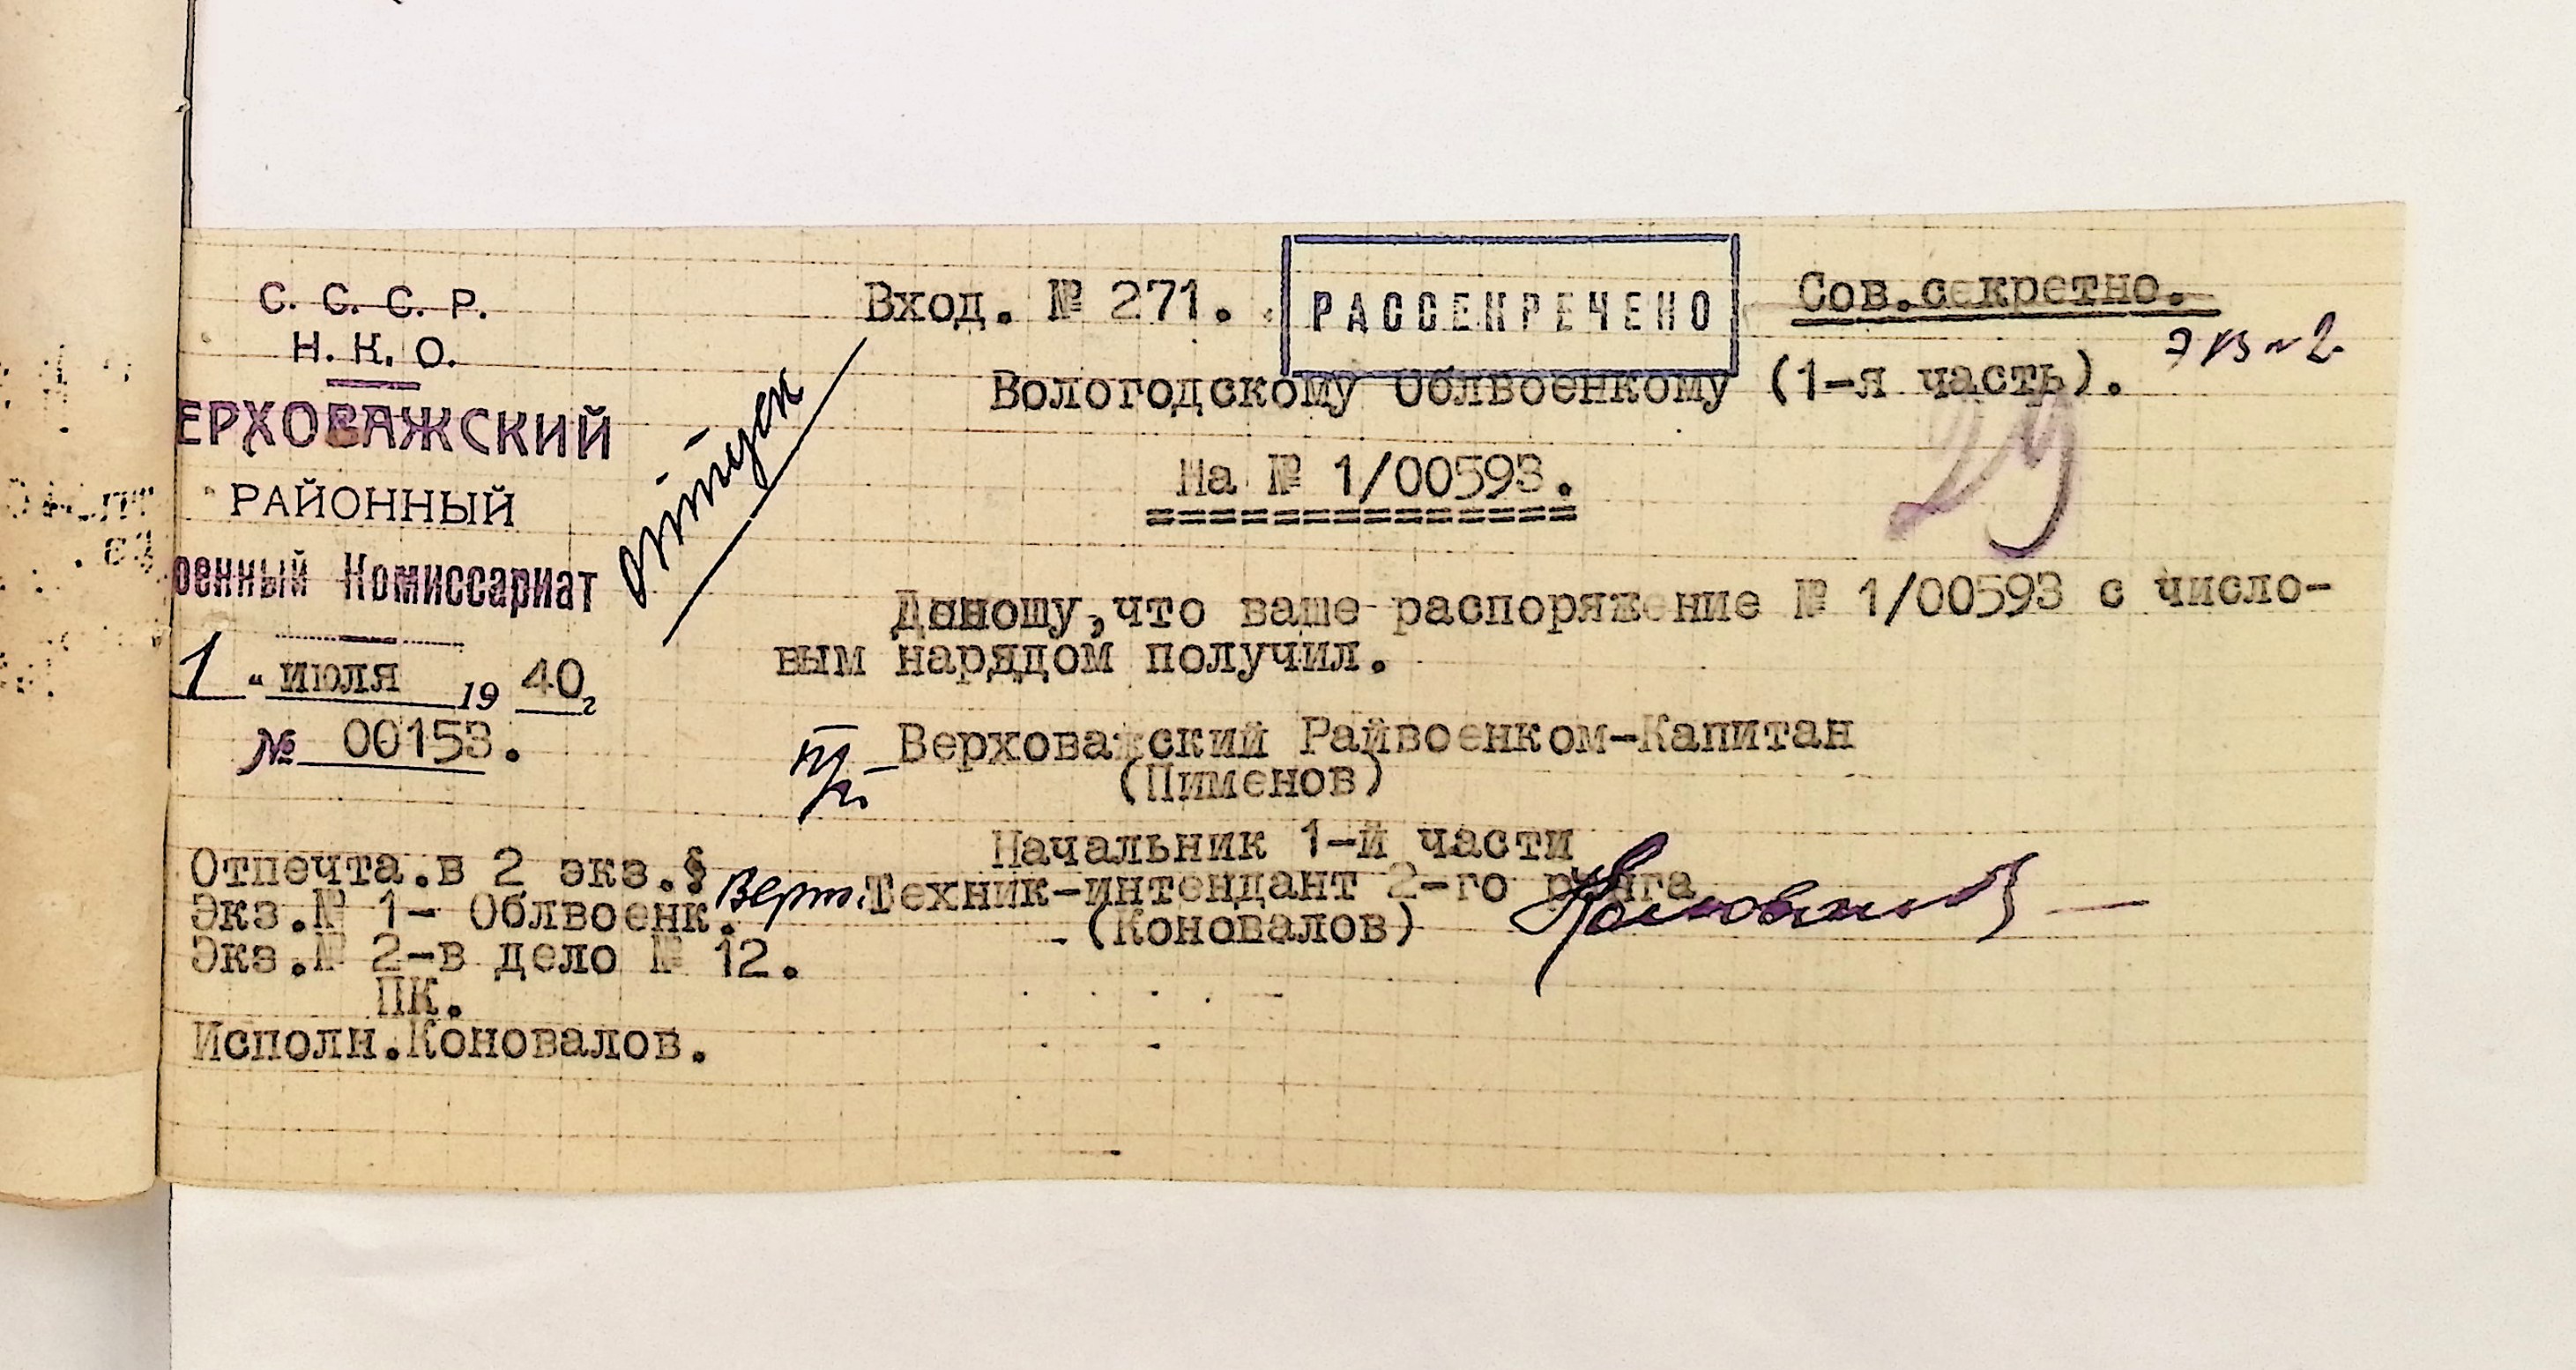 С. С. С. Р.
Н. К. О.
ЕРХОВАЖСКИЙ
РАЙОННЫЙ
оенный Комиссариат
1 " июля 19 40 г
№ 00153.
отпуск
Вход. № 271.
РАССЕКРЕЧЕНО
Сов.секретно.
экз № 2
Вологодскому Облвоенкому (1-я часть).
29
На № 1/00593.
Доношу,что ваше распоряжение № 1/00593 с число-
вым нарядом получил.
Верховажский Райвоенком-Капитан
(Пименов)
Начальник 1-й части
Техник-интендант 2-го ранга
(Коновалов)
Отпечта.в 2 экз.
Экз.№ 1- Облвоенк.
Экз.№ 2-в дело № 12.
ПК.
Исполн.Коновалов.